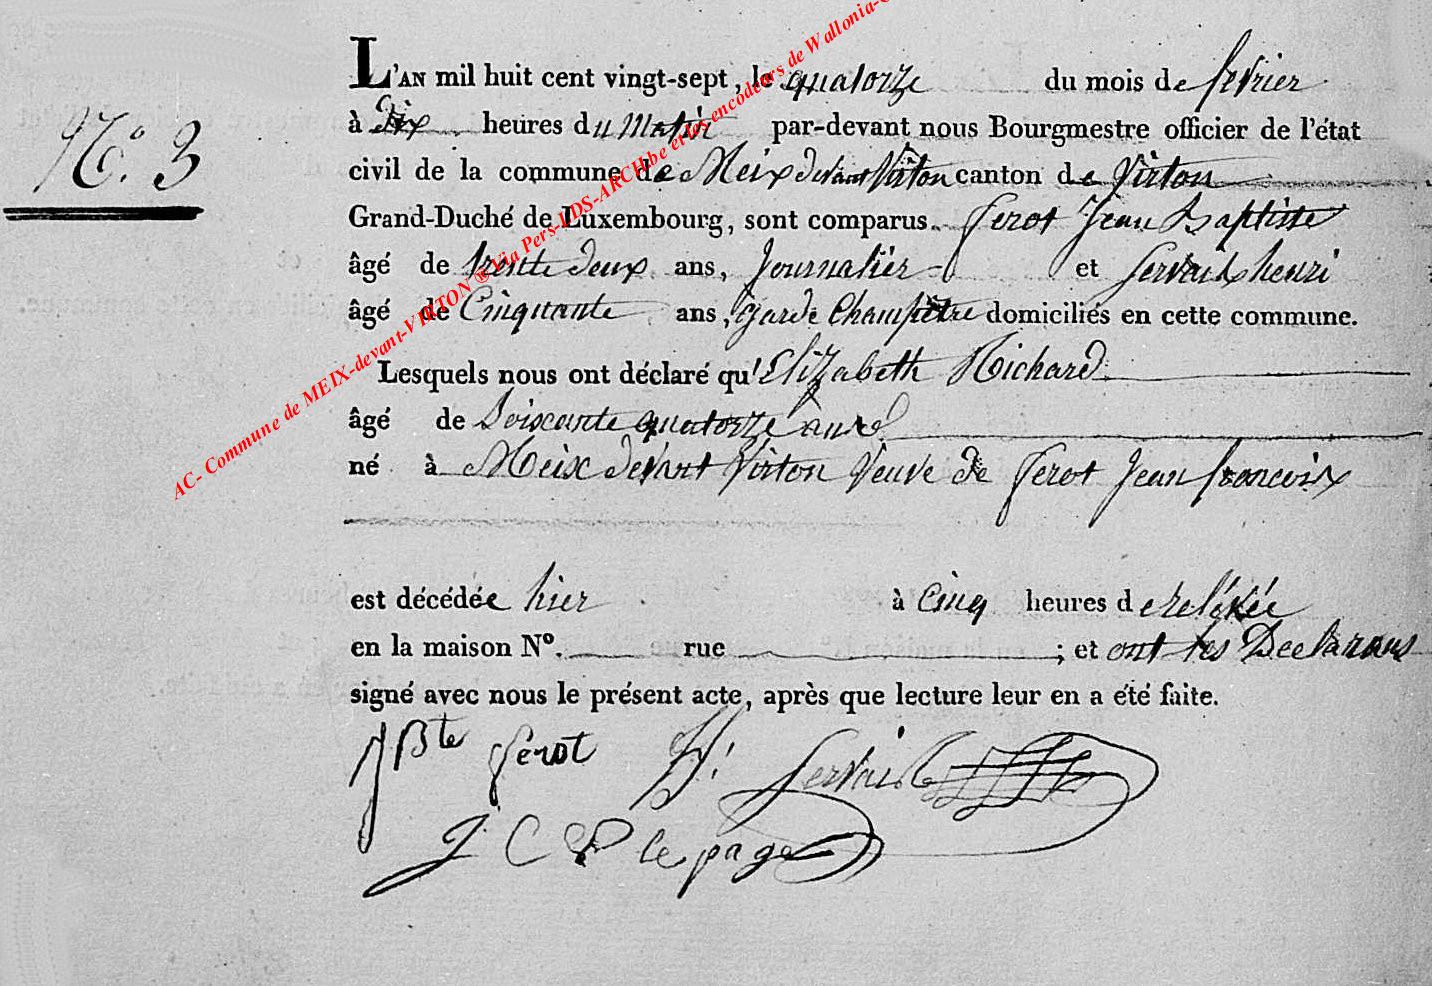 AC- Commune de MEIX-devant-VIRTON ® Via Pers-LDS-ARCH.be et les encodeurs de Wallonia-
L'AN mil huit cent vingt-sept, le quatorze du mois de fevrier
N.° 3
à dix heures du matin par-devant nous Bourgmestre officier de l'état
civil de la commune de Meix devant Virton canton de Virton
Grand-Duché de Luxembourg, sont comparus. ferot Jean Baptiste
âgé de trente deux ans, Journalier et Servais henri
âgé de Cinquante ans, garde Champêtre domiciliés en cette commune.
Lesquels nous ont déclaré qu'Elizabeth Richard
âgé de Soixante quatorze
né à Meix devant Virton Veuve de ferot Jean francoix
est décédée hier à cinq heures de relevée
en la maison N°. rue ; et ont les Declarans
signé avec nous le présent acte, après que lecture leur en a été faite.
J Bte ferot H. Servais
J C le page